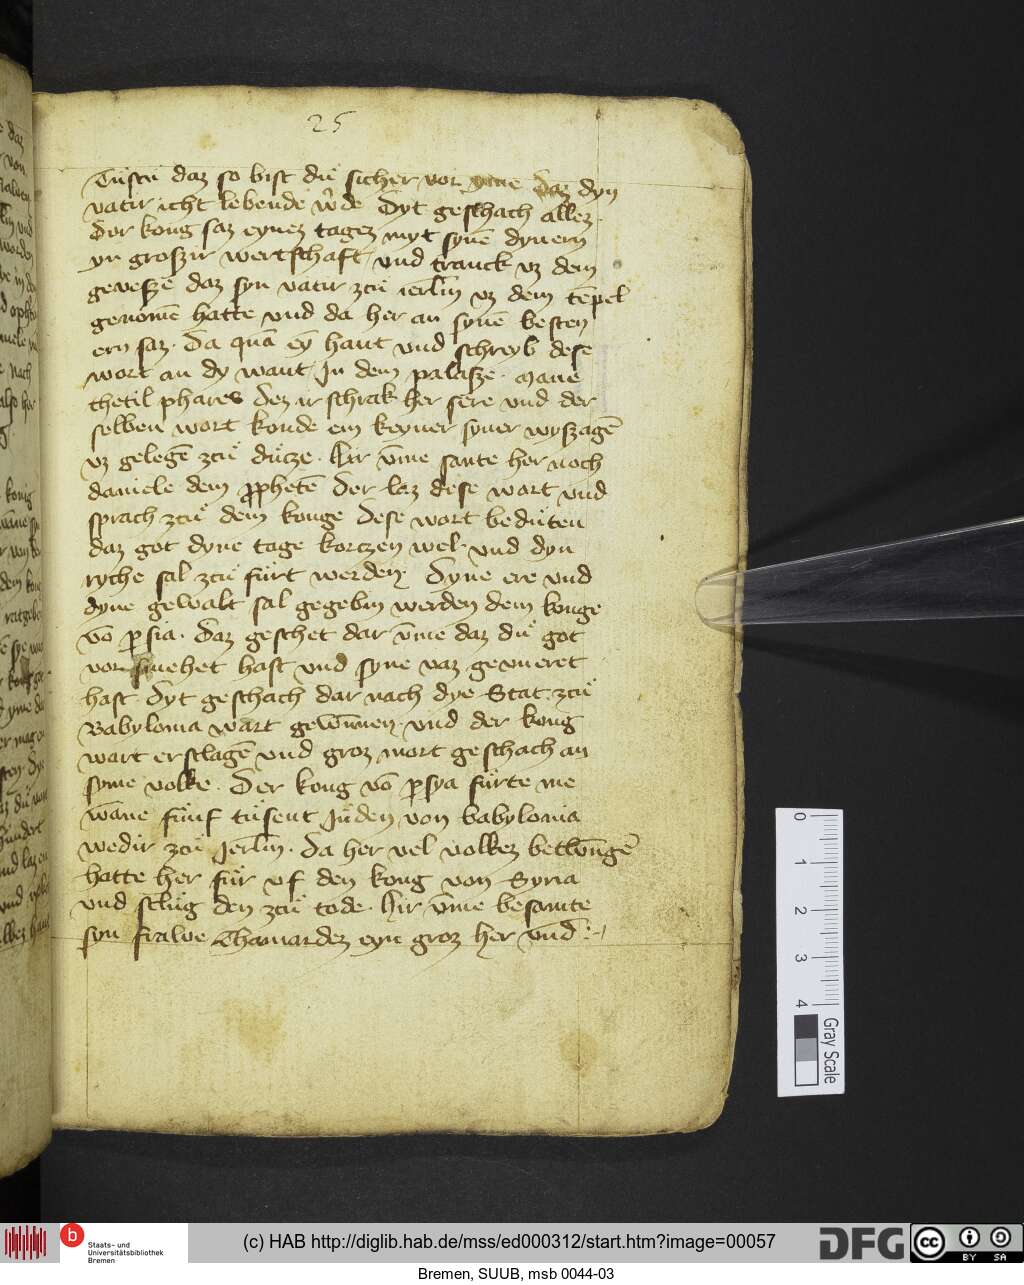 25
Tüstu daz so bist die sicher vor daz dyn
vatir icht lebende w'de Dyt geschach allez
Der kong saz eynez tagez myt synē dynern
yn groszir wertschaft vnd tranck vz dem
gevesze daz syn vatir zcu ierlm̄ vz dem tēpel
genōmē hatte vnd da her an synē besten
ern saz. Da quā ey hant vnd schreyb dese
wort an dy want Jn dem palasze. Mane
thetil phares Dez ir schrak her sere vnd der
selben wort konde em keyner syner wyszagē
vz gelegē zcu dücze. Hir vm̄e sante her noch
daniele dem pphetē Der laz dese wort vnd
sprach zcu dem konge Dese wort bedüten
daz got dyne tage korczen wel. vnd dyn
ryche sal zcu fürt werden. Dyne ere vnd
dyne gewalt sal gegebin werden dem konge
vō psia. Daz geschet dar vm̄e daz du got
vor hast vnd syne vaz gevneret
hast. Dyt geschach dar nach dye Stat zcu
Babylonia wart gewūnen. vnd der kong
wart erslagē vnd groz mort geschach an
syme volke. Der kong vō psya fürte me
wāne fünf tüsent Jüden von babylonia
wedir zcu Jerlm̄. Da her vel volkez betwūngē
hatte her für vf den kong von Syria
vnd sclüg den zcu tode. Hir vm̄e besante
syn frawe Thamardez eyn groz her vnd
0 1 2 3 4
Gray Scale
b
Staats- und
Universitätsbibliothek
Bremen
(c) HAB http://diglib.hab.de/mss/ed000312/start.htm?image=00057
DFG
cc BY SA
Bremen, SUUB, msb 0044-03